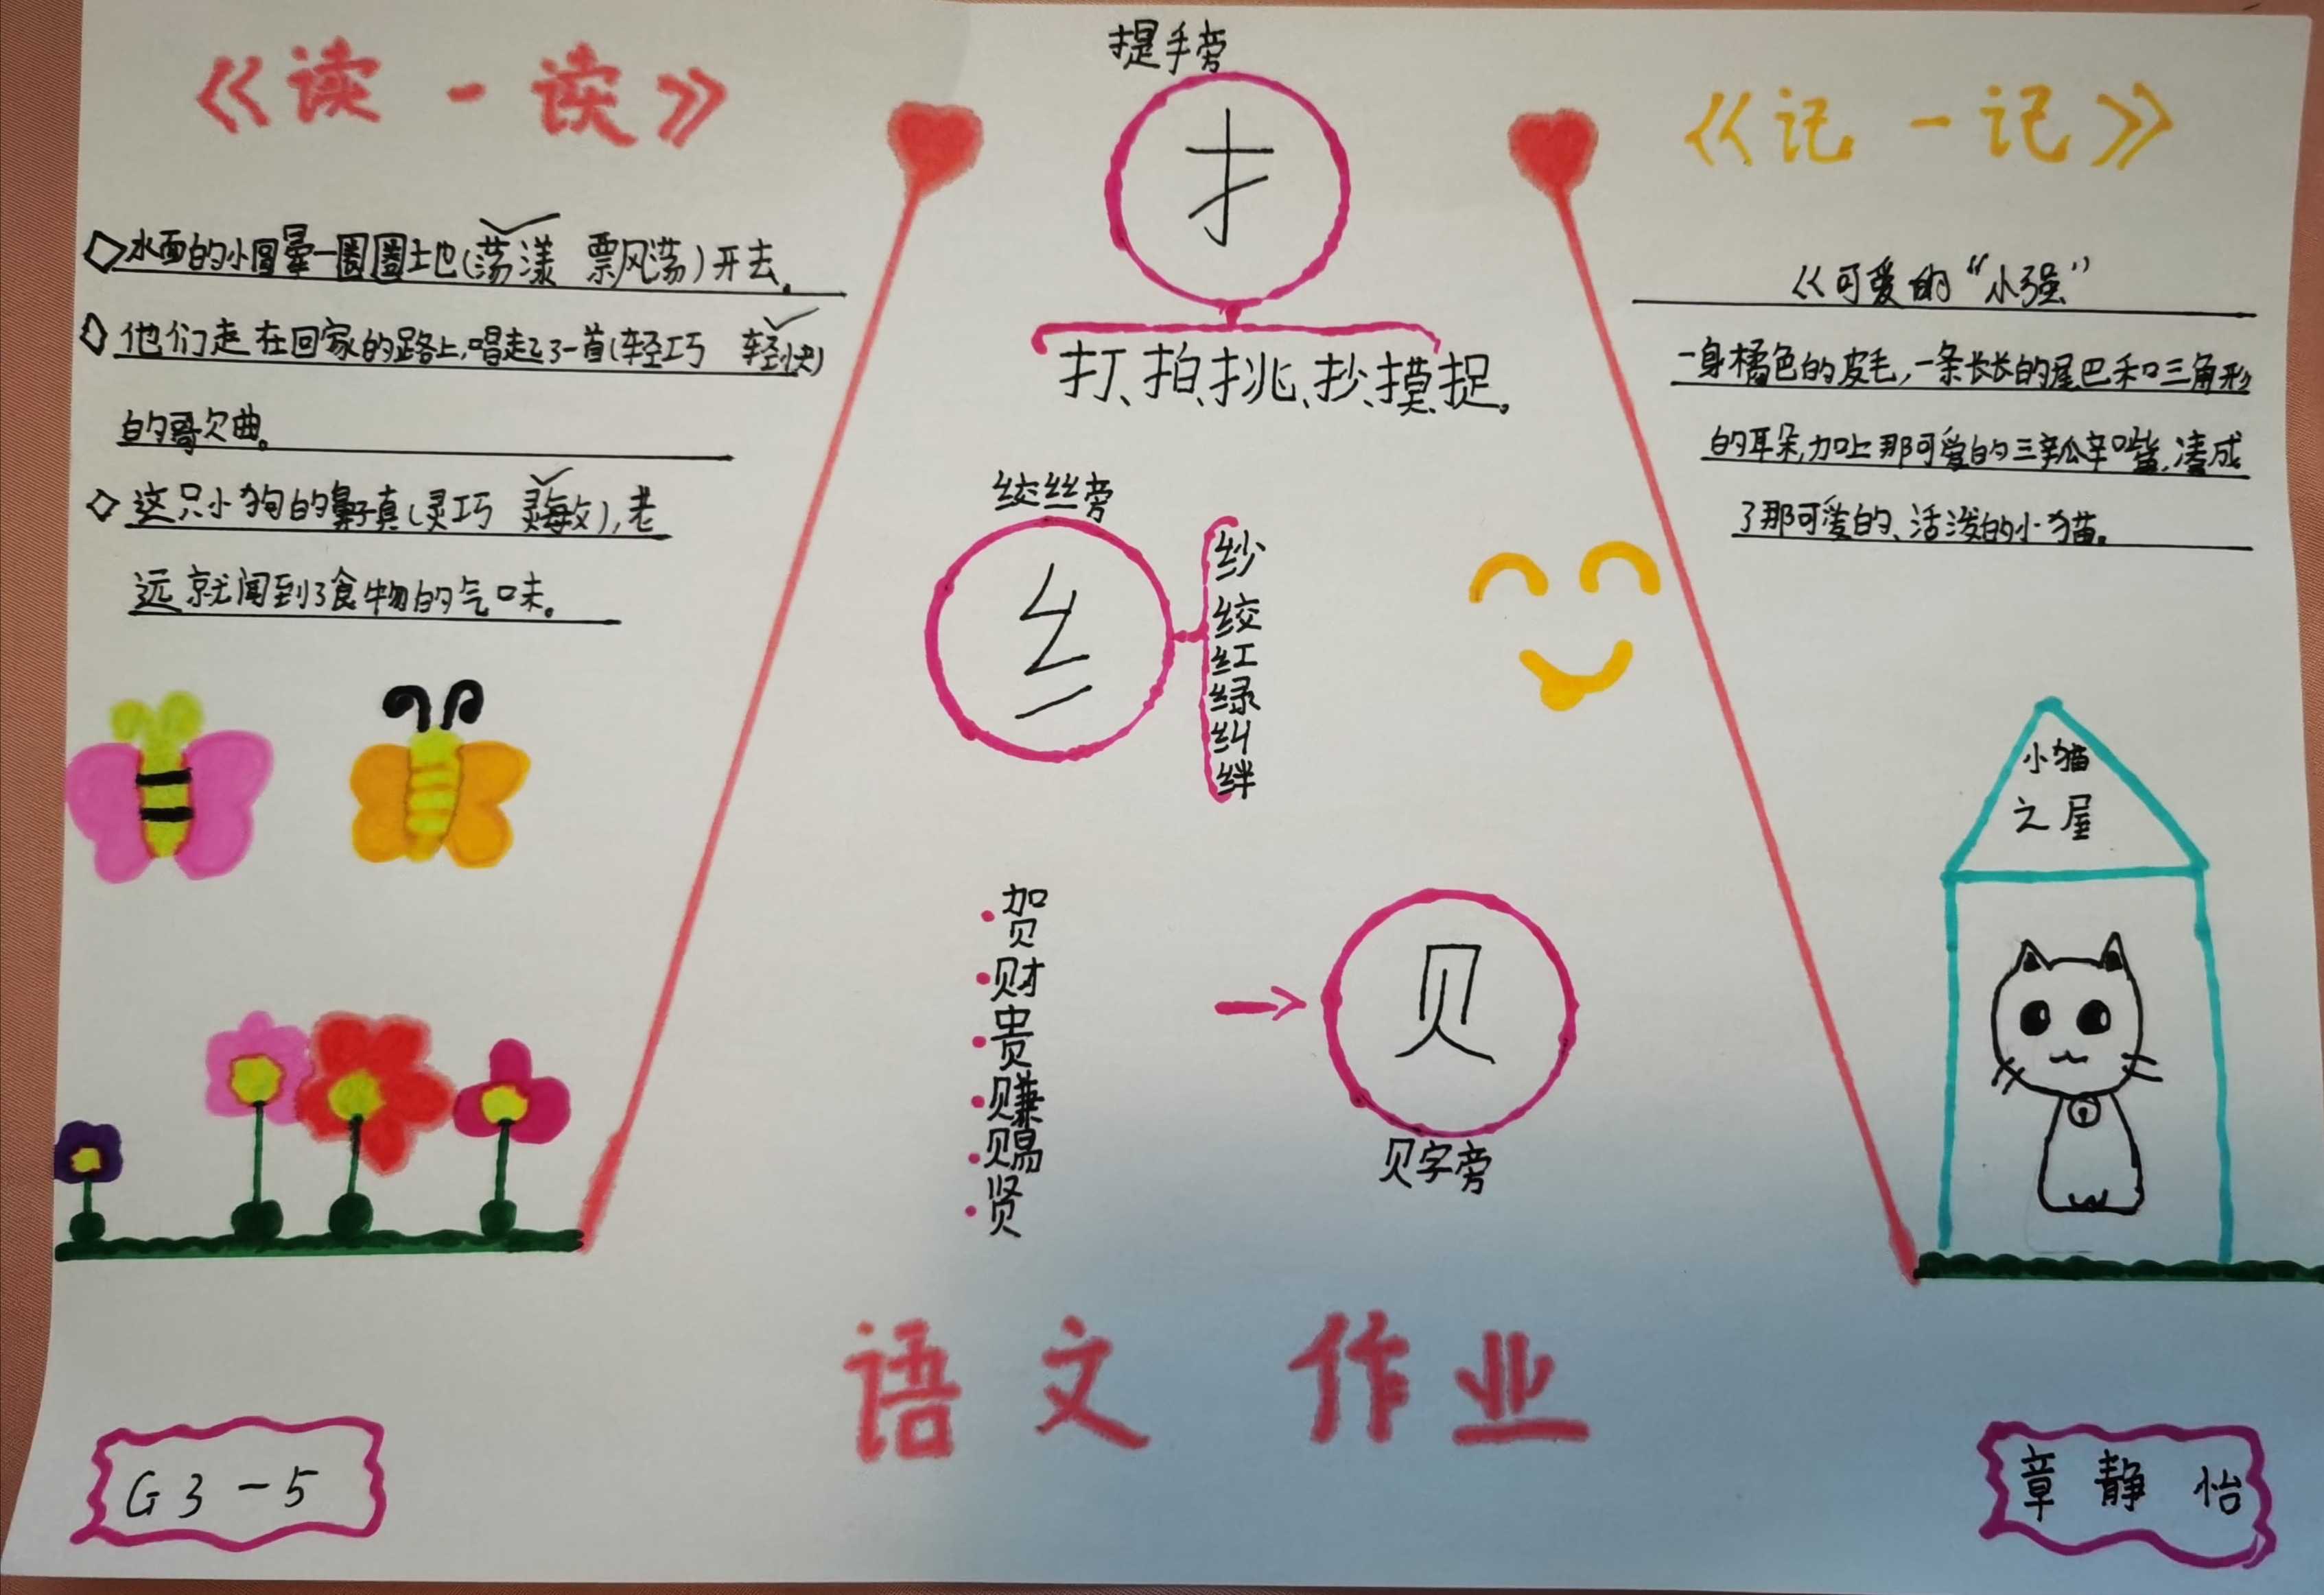 《读一读》
水面的小圆晕一圈圈地(荡漾 飘荡)开去。
他们走在回家的路上,唱起了一首(轻巧 轻快)
的歌曲。
这只小狗的鼻子真(灵巧 灵敏),老
远就闻到了食物的气味。
提手旁
扌
打、拍、挑、抄、摸、捉。
绞丝旁
纟
纱
绞
红
绿
纠
绊
贺
财
贵
赚
赐
贤
贝
贝字旁
《记一记》
《可爱的“小强”
一身橘色的皮毛,一条长长的尾巴和三角形
的耳朵,加上那可爱的三瓣嘴,凑成
了那可爱的、活泼的小猫。
小猫
之屋
语文 作业
G3-5
章静怡